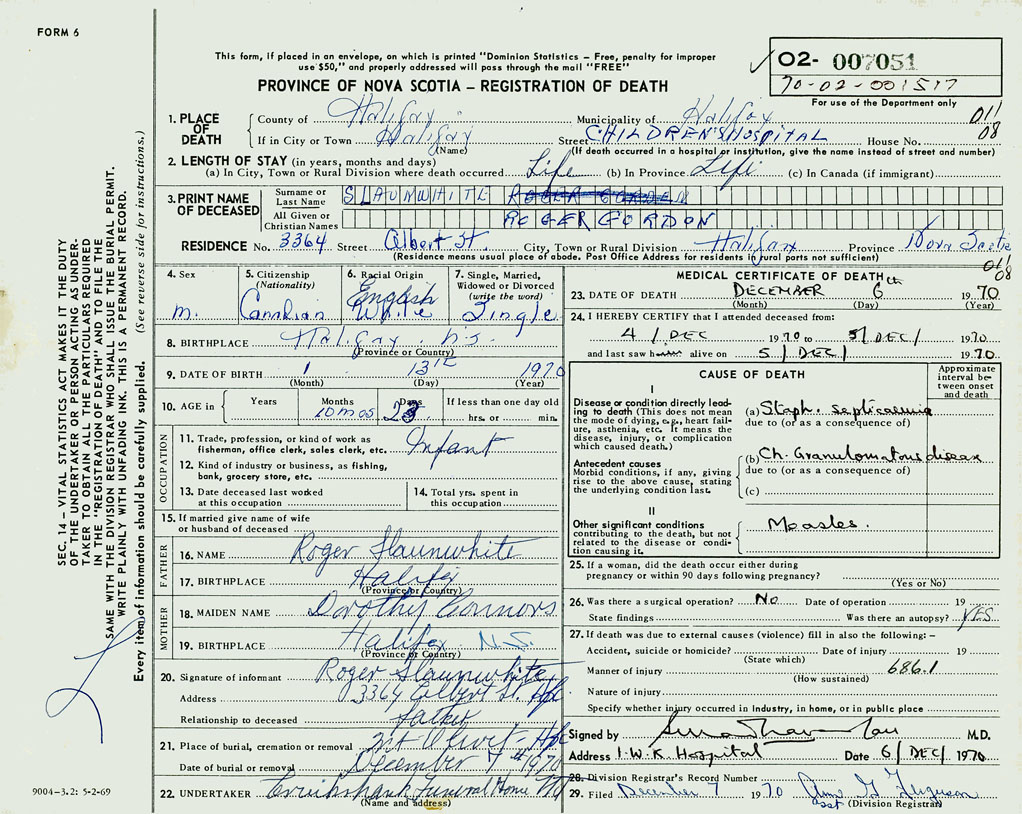 FORM 6
This form, if placed in an envelope, on which is printed "Dominion Statistics – Free, penalty for improper
use $50," and properly addressed will pass through the mail "FREE"
02- 007051
70-02-001517
For use of the Department only
PROVINCE OF NOVA SCOTIA – REGISTRATION OF DEATH
1. PLACE OF DEATH
County of Halifax Municipality of Halifax 011
If in City or Town Halifax Street CHILDREN'S HOSPITAL House No. 08
(Name) (If death occurred in a hospital or institution, give the name instead of street and number)
2. LENGTH OF STAY (in years, months and days)
(a) In City, Town or Rural Division where death occurred Life (b) In Province Life (c) In Canada (if immigrant)
3. PRINT NAME OF DECEASED
Surname or Last Name SLAUNWHITE ROGER GORDON
All Given or Christian Names ROGER GORDON
RESIDENCE No. 3364 Street Albert St. City, Town or Rural Division Halifax Province Nova Scotia
(Residence means usual place of abode. Post Office Address for residents in rural parts not sufficient)
011
08
4. Sex
m.
5. Citizenship
(Nationality)
Canadian
6. Racial Origin
English
White
7. Single, Married,
Widowed or Divorced
(write the word)
Single
8. BIRTHPLACE Halifax N.S.
(Province or Country)
9. DATE OF BIRTH 1 13th 1970
(Month) (Day) (Year)
10. AGE in Years Months Days If less than one day old
10 mos 23 hrs. or min.
OCCUPATION
11. Trade, profession, or kind of work as
fisherman, office clerk, sales clerk, etc. Infant
12. Kind of industry or business, as fishing,
bank, grocery store, etc.
13. Date deceased last worked
at this occupation
14. Total yrs. spent in
this occupation
15. If married give name of wife
or husband of deceased
FATHER
16. NAME Roger Slaunwhite
17. BIRTHPLACE Halifax
(Province or Country)
MOTHER
18. MAIDEN NAME Dorothy Connors
19. BIRTHPLACE Halifax N.S.
(Province or Country)
20. Signature of informant Roger Slaunwhite
Address 3364 Albert St. Hfx
Relationship to deceased Father
21. Place of burial, cremation or removal Mt Olivet - Hfx
Date of burial or removal December 7th 1970
22. UNDERTAKER Cruikshank Funeral Home
(Name and address)
MEDICAL CERTIFICATE OF DEATH
23. DATE OF DEATH DECEMBER 6th 1970
(Month) (Day) (Year)
24. I HEREBY CERTIFY that I attended deceased from:
4/DEC 1970 to 5/DEC/ 1970
and last saw h alive on 5/DEC/ 1970
CAUSE OF DEATH
Approximate
interval between
onset
and death
I
Disease or condition directly leading
to death (This does not mean
the mode of dying, e.g., heart failure,
asthenia, etc. It means the
disease, injury, or complication
which caused death.)
(a) Staph. septicaemia
due to (or as a consequence of)
Antecedent causes
Morbid conditions, if any, giving
rise to the above cause, stating
the underlying condition last.
(b) Ch. Granulomatous disease
due to (or as a consequence of)
(c)
II
Other significant conditions
contributing to the death, but not
related to the disease or condition
causing it.
Measles.
25. If a woman, did the death occur either during
pregnancy or within 90 days following pregnancy?
(Yes or No)
26. Was there a surgical operation? No Date of operation 19
State findings Was there an autopsy? YES
27. If death was due to external causes (violence) fill in also the following:–
Accident, suicide or homicide? Date of injury 19
(State which)
Manner of injury 686.1
(How sustained)
Nature of injury
Specify whether injury occurred in industry, in home, or in public place
Signed by M.D.
Address I.W.K. Hospital Date 6/DEC/ 1970
28. Division Registrar's Record Number
29. Filed December 7 1970 Ferguson
asst (Division Registrar)
SEC. 14 – VITAL STATISTICS ACT MAKES IT THE DUTY
OF THE UNDERTAKER OR PERSON ACTING AS UNDERTAKER
TO OBTAIN ALL THE PARTICULARS REQUIRED
IN THE "REGISTRATION OF DEATH" AND TO FILE THE
SAME WITH THE DIVISION REGISTRAR WHO SHALL ISSUE THE BURIAL PERMIT.
WRITE PLAINLY WITH UNFADING INK. THIS IS A PERMANENT RECORD.
Every item of information should be carefully supplied. (See reverse side for instructions.)
9004-3.2: 5-2-69